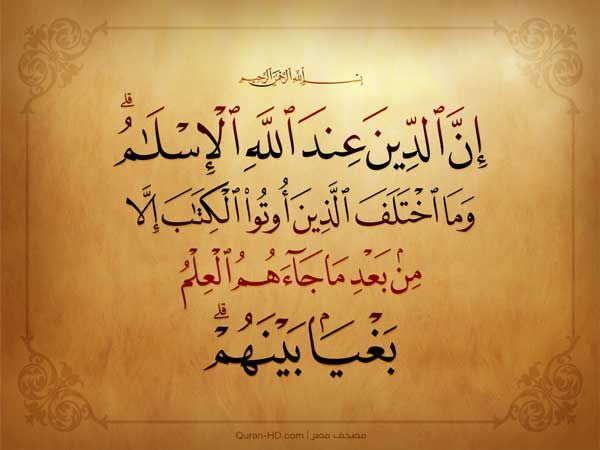 بِسْمِ ٱللَّهِ ٱلرَّحْمَٰنِ ٱلرَّحِيمِ
إِنَّ ٱلدِّينَ عِندَ ٱللَّهِ ٱلْإِسْلَٰمُ ۗ
وَمَا ٱخْتَلَفَ ٱلَّذِينَ أُوتُوا۟ ٱلْكِتَٰبَ إِلَّا
مِنۢ بَعْدِ مَا جَآءَهُمُ ٱلْعِلْمُ
بَغْيًۢا بَيْنَهُمْ ۗ
Quran-HD.com | مصحف مصر